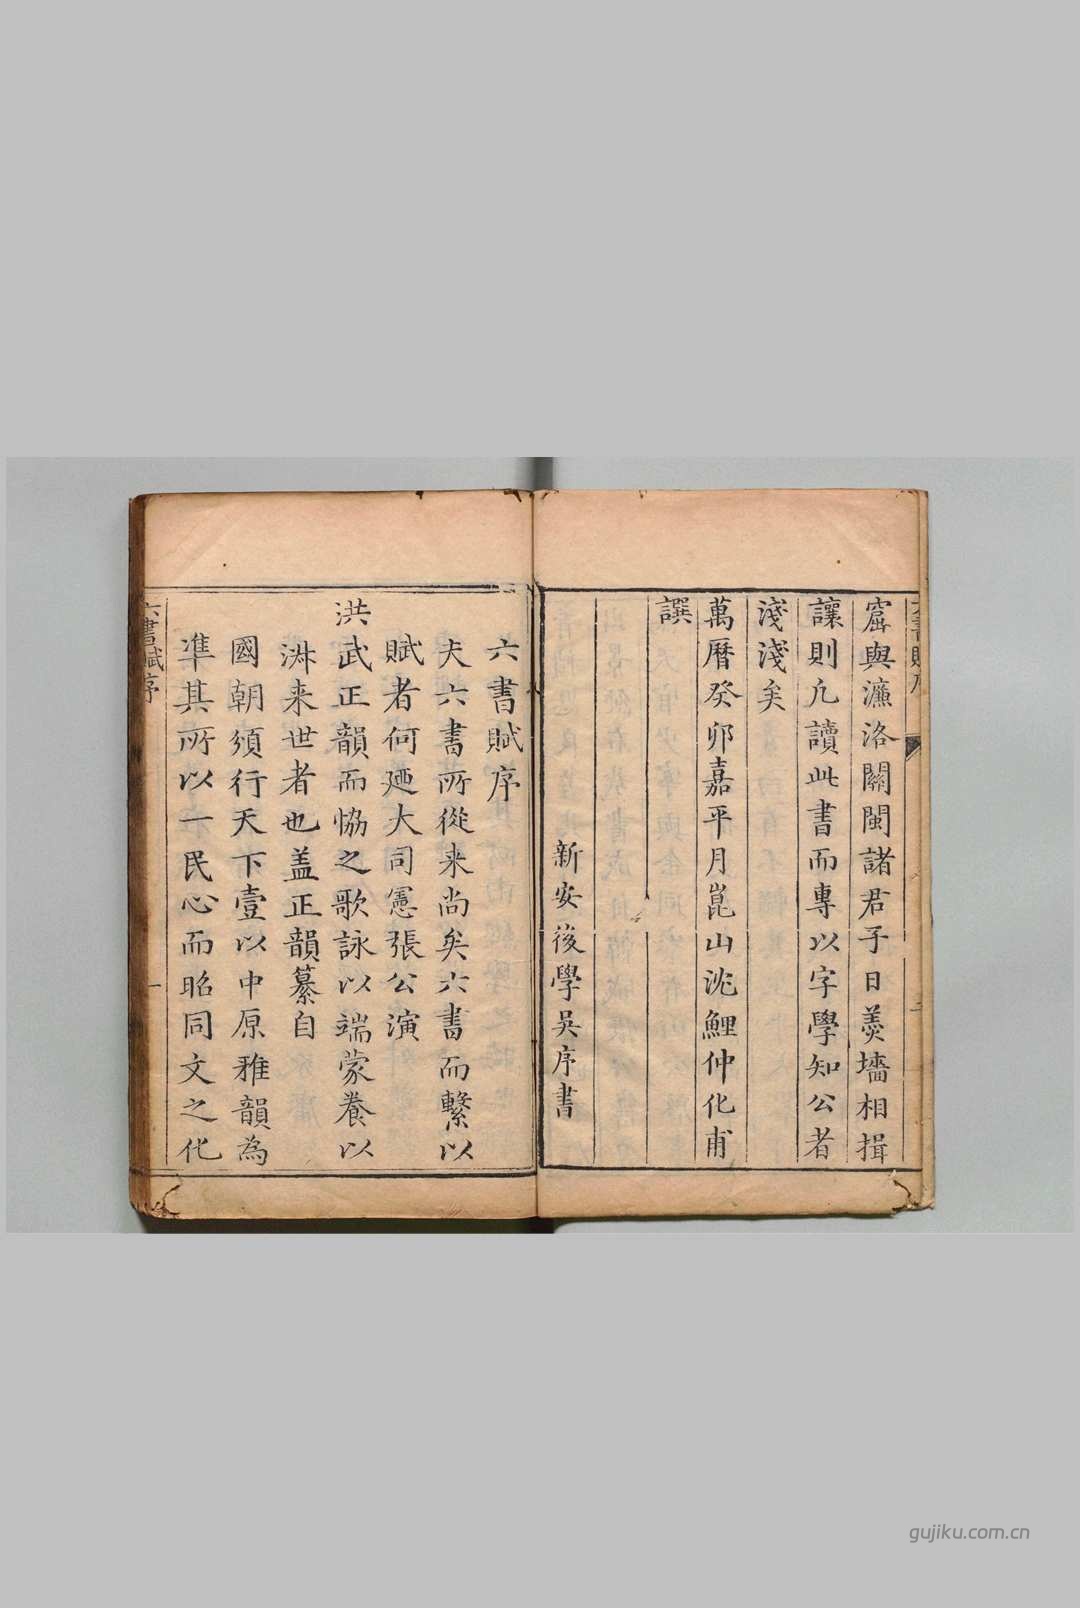 窟與濂洛關閩諸君子日羹墻相揖
讓則凡讀此書而專以字學知公者
淺淺矣
萬曆癸卯嘉平月崑山沈鯉仲化甫
譔
新安後學吳序書
六書賦序
夫六書所從来尚矣六書而繫以
賦者何廼大同憲張公演
洪武正韻而恊之歌詠以端蒙養以
淋来世者也盖正韻纂自
國朝頒行天下壹以中原雅韻為
準其所以一民心而昭同文之化
六書賦序
一
gujiku.com.cn